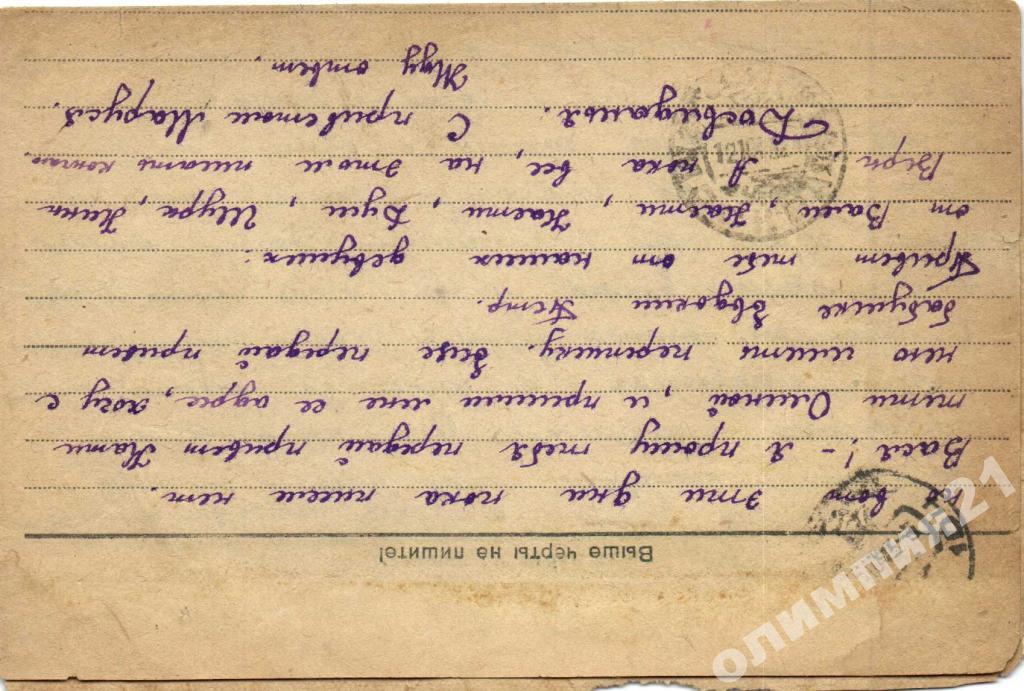 Выше черты не пишите!
но вот эти дни пока писем нет.
Вася! - я прошу тебя передай привет Кати
тети Олиной, и пришли мне ее адрес, хочу с
нею иметь переписку. Еще передай привет
бабушке Евдокии Петр.
Привет тебе от наших девушек:
от Вали, Насти, Насти, Дуси, Шуры, Нины
Веры. А пока все, на этом писать кончаю.
Досвиданья. С приветом Маруся.
Жду ответ.
олимпия21